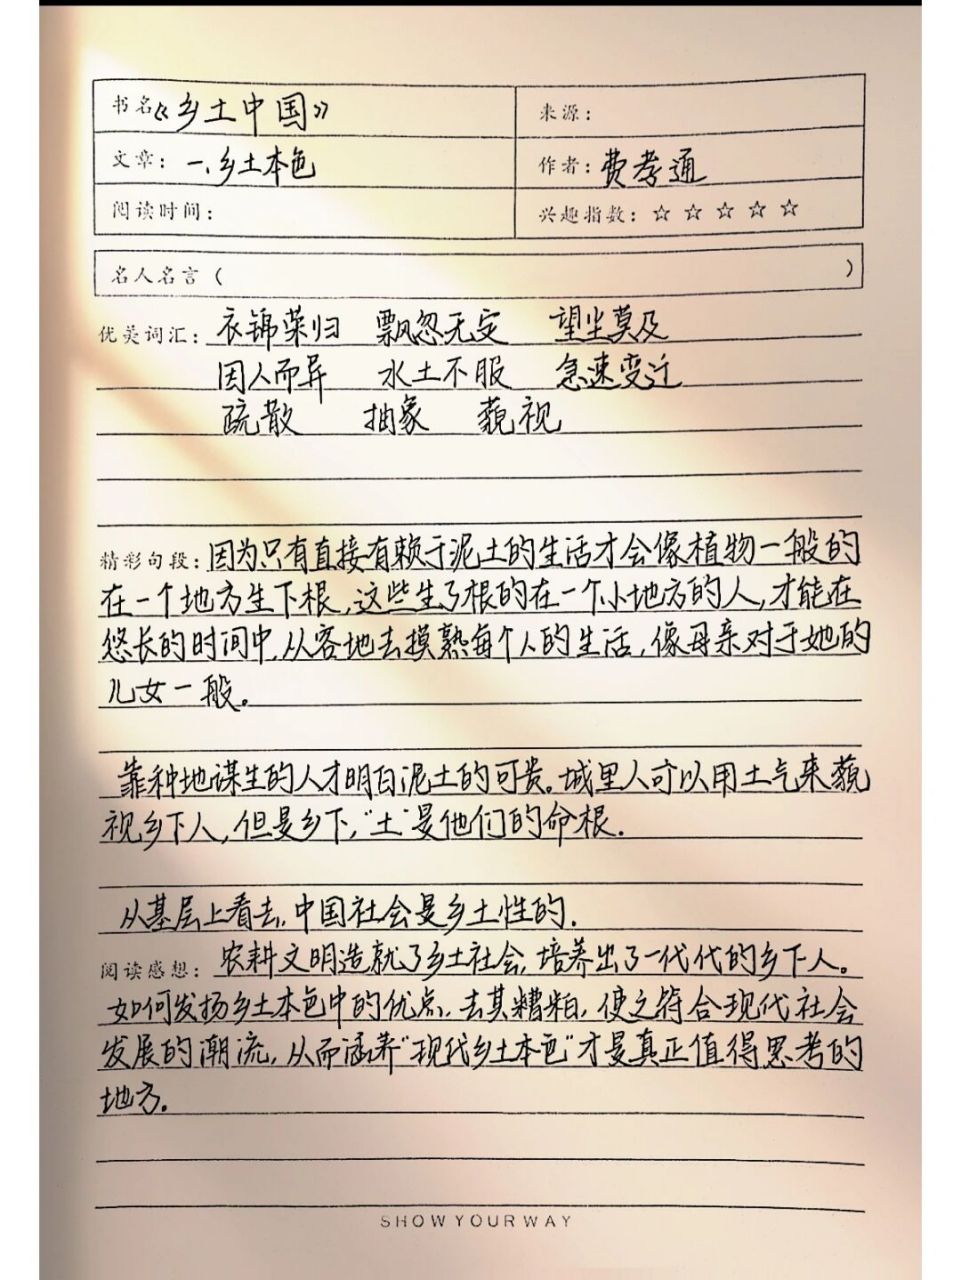 书名《乡土中国》 来源：
文章：一、乡土本色 作者：费孝通
阅读时间： 兴趣指数：☆☆☆☆☆
名人名言（ ）
优美词汇：衣锦荣归 飘忽无定 望尘莫及
因人而异 水土不服 急速变迁
疏散 抽象 藐视
精彩句段：因为只有直接有赖于泥土的生活才会像植物一般的
在一个地方生下根，这些生了根的在一个小地方的人，才能在
悠长的时间中，从容地去摸熟每个人的生活，像母亲对于她的
儿女一般。
靠种地谋生的人才明白泥土的可贵。城里人可以用土气来藐
视乡下人，但是乡下，“土”是他们的命根．
从基层上看去，中国社会是乡土性的．
阅读感想：农耕文明造就了乡土社会，培养出了一代代的乡下人。
如何发扬乡土本色中的优点，去其糟粕，使之符合现代社会
发展的潮流，从而涵养“现代乡土本色”才是真正值得思考的
地方．
SHOW YOUR WAY